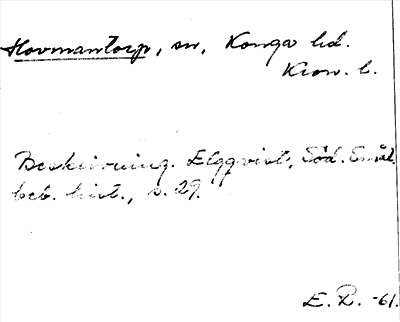 Hovmantorp, sn, Konga hd.
Kron. l.
Beskrivning. Elgqvist, Söd. Smål.
beb. hist., s. 29.
E. R. -61.